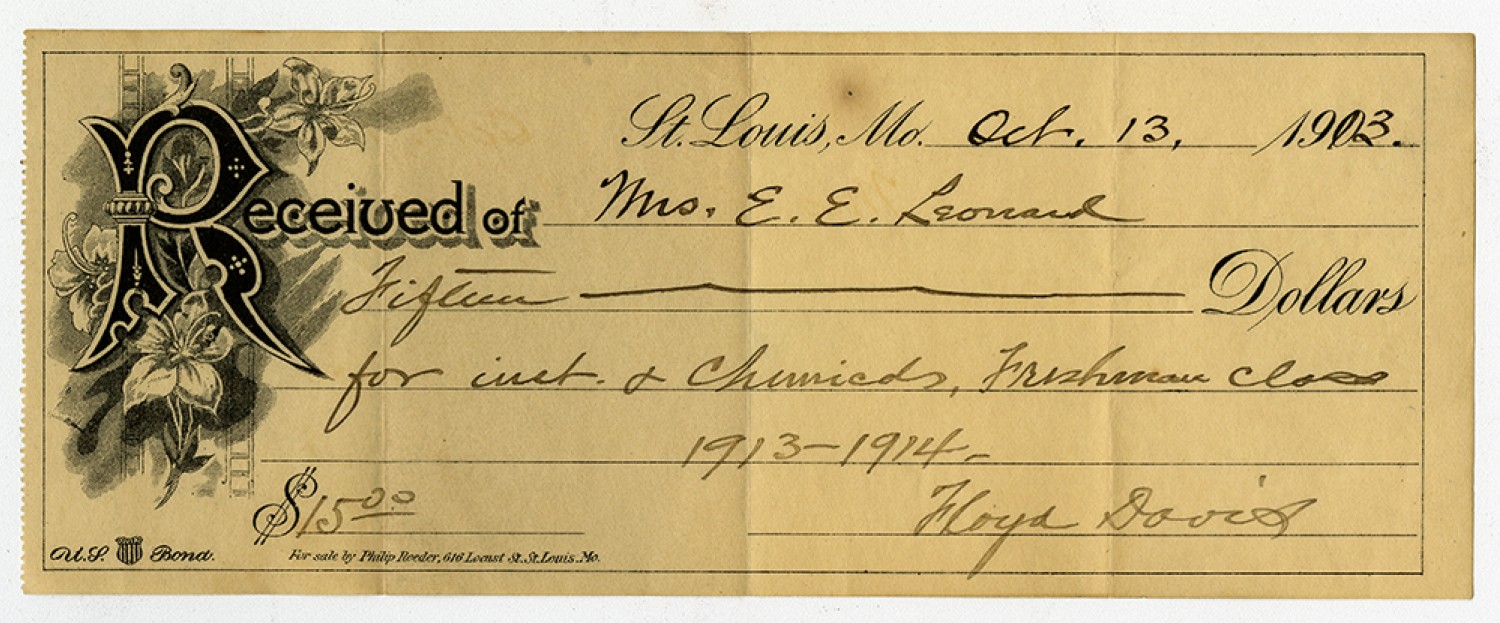 St. Louis, Mo. Oct. 13, 1903.
Received of Mrs. E. E. Leonard
Fifteen Dollars
for inst. & Chemicals, Freshman class
1913-1914.
$15.00 Floyd Davis
U.S. Bond. For sale by Philip Roeder, 616 Locust St. St. Louis. Mo.